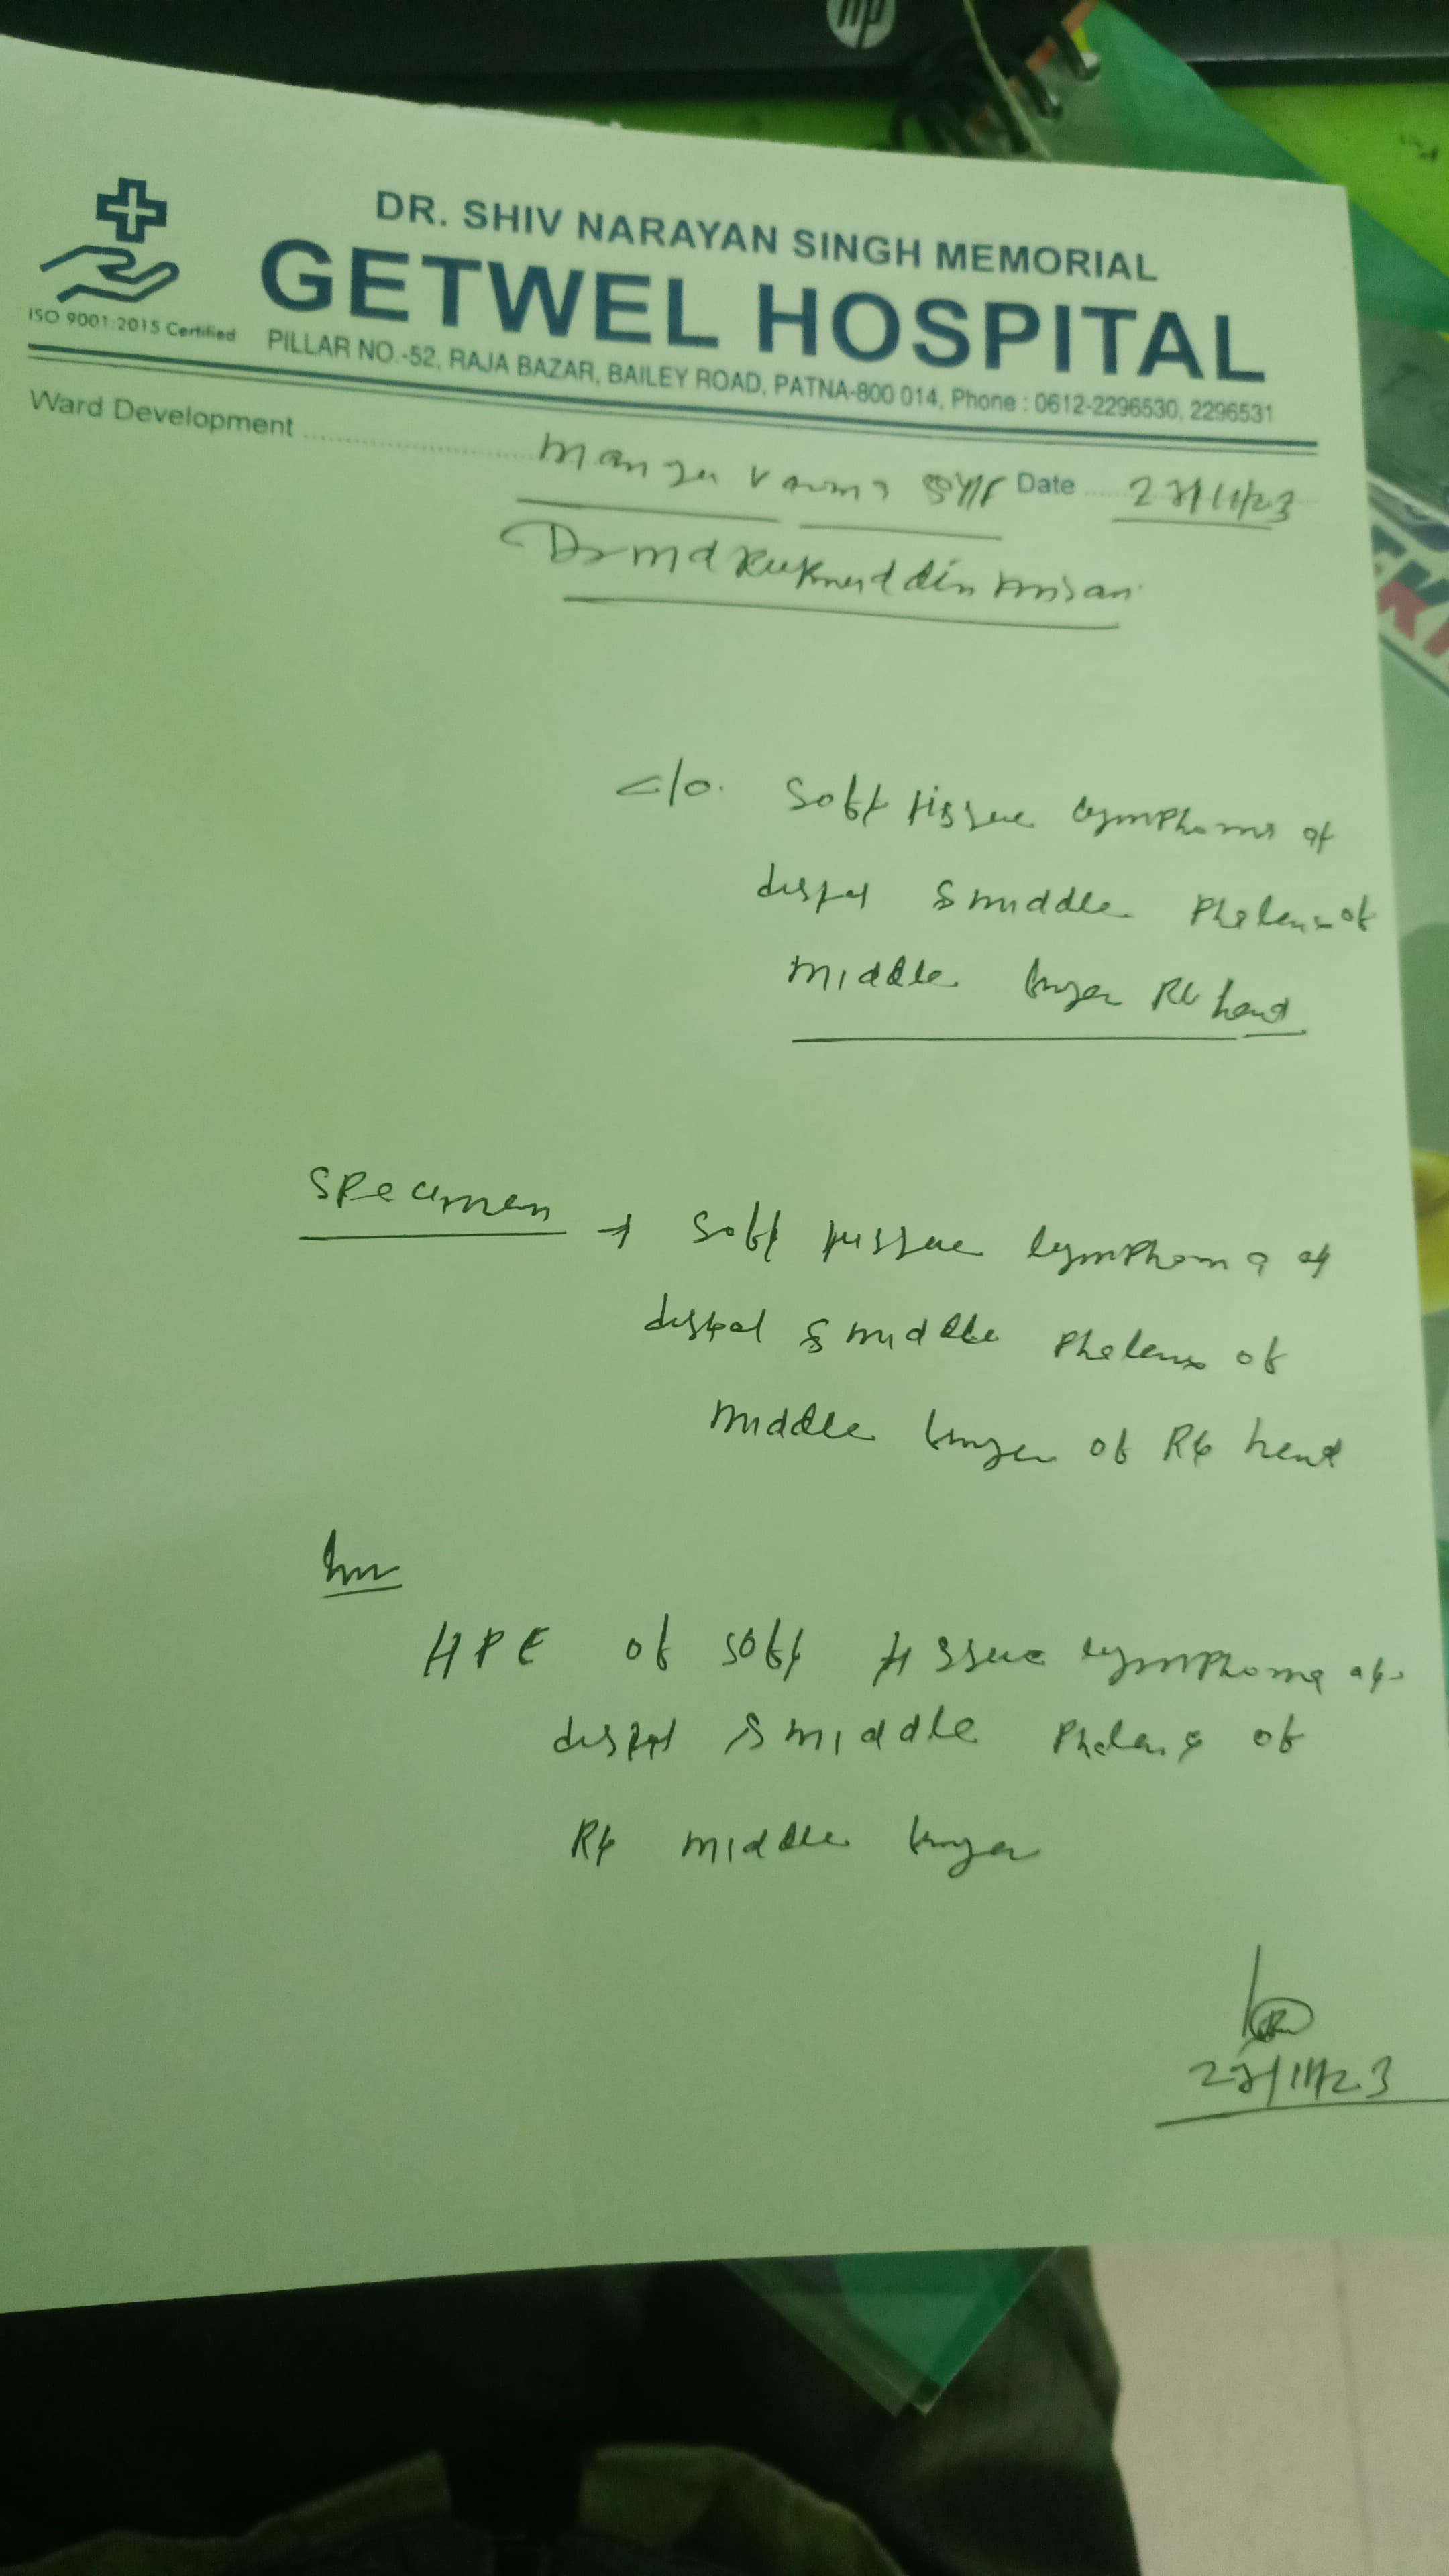 hp
DR. SHIV NARAYAN SINGH MEMORIAL
GETWEL HOSPITAL
ISO 9001:2015 Certified
PILLAR NO.-52, RAJA BAZAR, BAILEY ROAD, PATNA-800 014, Phone : 0612-2296530, 2296531
Ward Development Date
Dr md
c/o. Soft tissue lymphoma of
distal & middle Phalanx of
middle finger Rt hand
Specimen → Soft tissue lymphoma of
distal & middle Phalanx of
middle finger of Rt hand
Inv
HPE of soft tissue lymphoma of
distal & middle Phalanx of
Rt middle finger